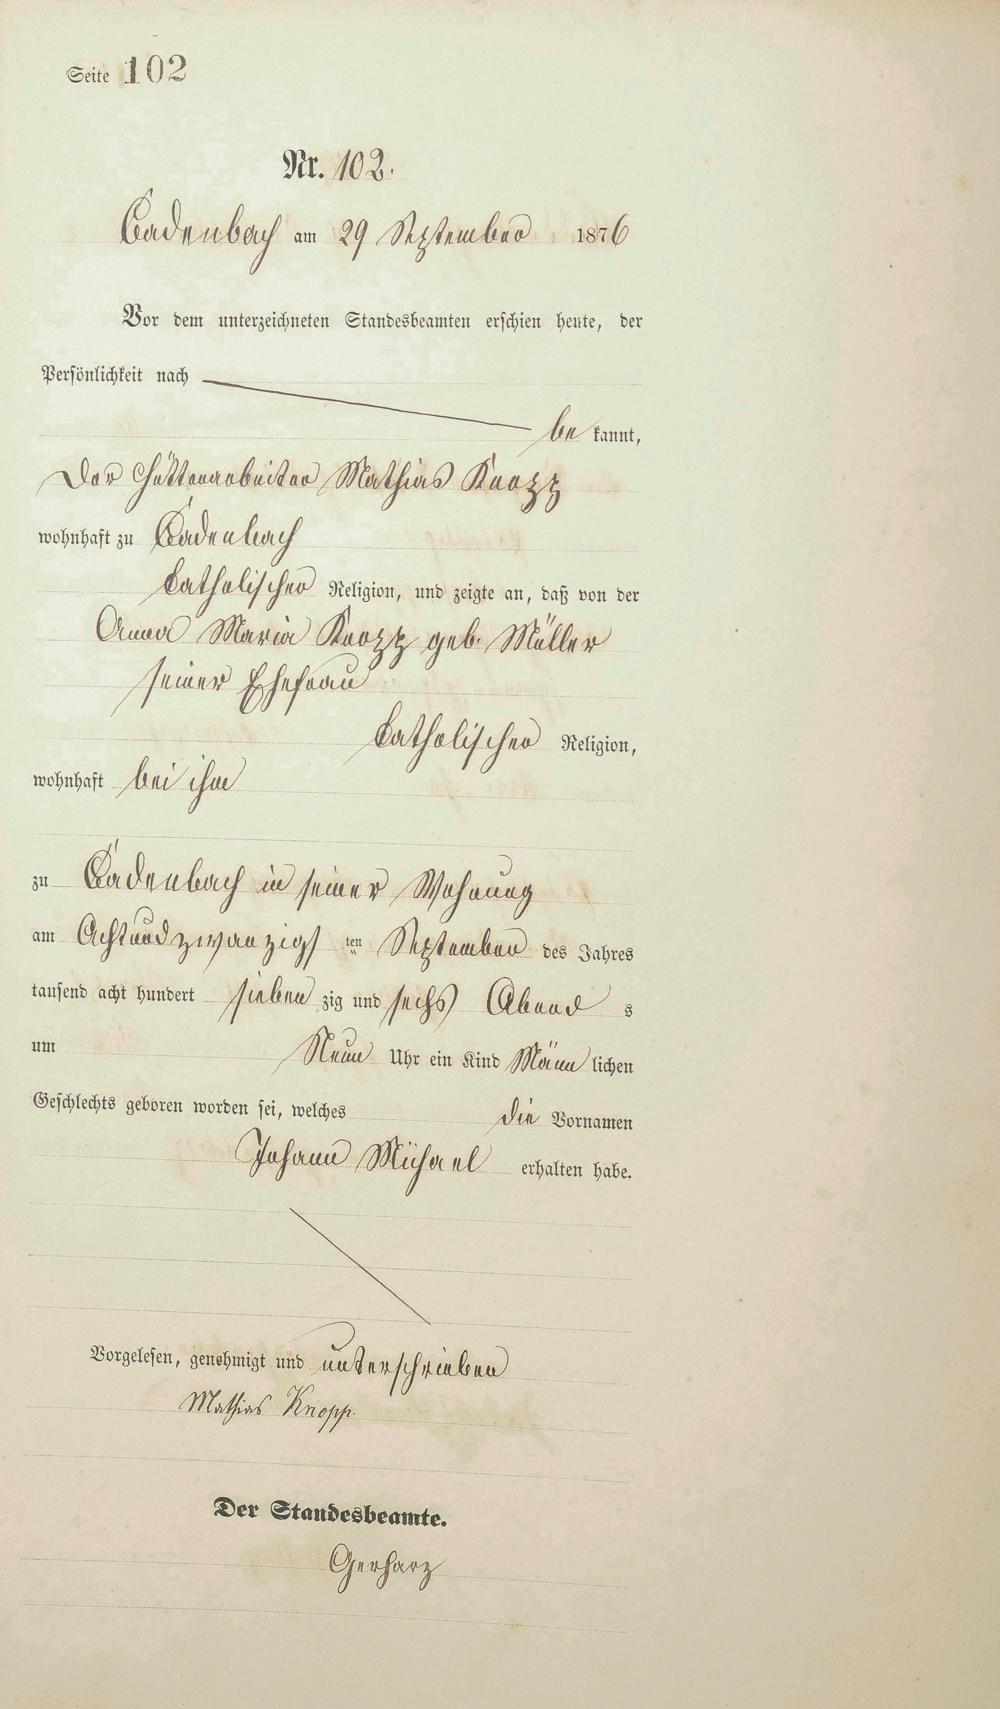 Seite 102
Nr. 102.
Cadenbach am 29 September 1876
Vor dem unterzeichneten Standesbeamten erschien heute, der
Persönlichkeit nach
be kannt,
Der Hüttenarbeiter Mathias Knopp
wohnhaft zu Cadenbach
Catholischer Religion, und zeigte an, daß von der
Anna Maria Knopp geb. Müller
seiner Ehefrau
Catholischer Religion,
wohnhaft bei ihm
zu Cadenbach in seiner Wohnung
am Achtundzwanzigs ten September des Jahres
tausend acht hundert sieben zig und sechs Abend s
um Neun Uhr ein Kind Männ lichen
Geschlechts geboren worden sei, welches die Vornamen
Johann Michael erhalten habe.
Vorgelesen, genehmigt und unterschrieben
Mathias Knopp.
Der Standesbeamte.
Gerharz